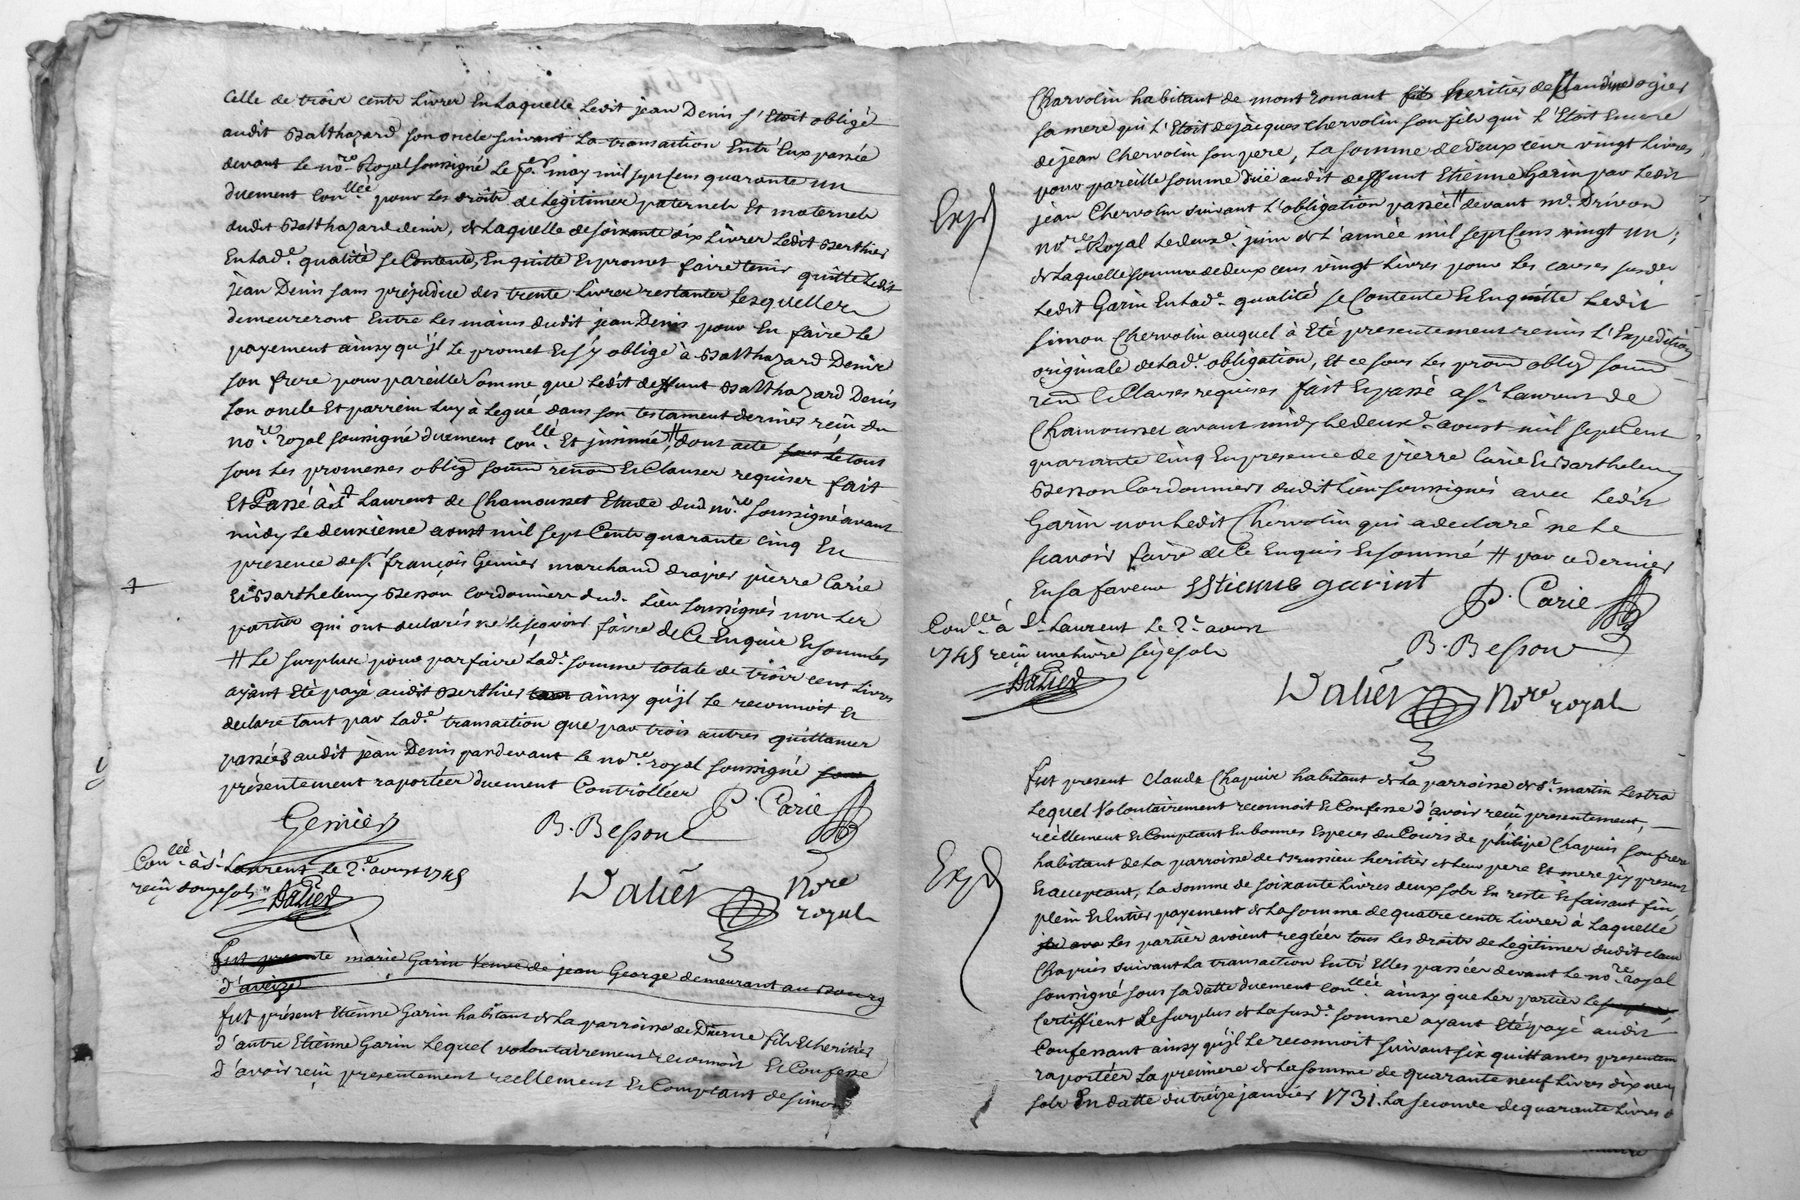 Celle de trois cents livres En laquelle Ledit jean Denis s'Etoit obligé
audit Balthazard son oncle suivant La transaction Entr'Eux passée
devant Le no.re Royal soussigné Le may mil sept cens quarante un
duement Con.llée pour Les droits de Legitimes paternels Et maternels
dudit Balthazard denis, & Laquelle de soixante dix Livres Ledit Berthier
En lad.e qualité se Contente, En quitte Et promet faire tenir quitte Ledit
jean Denis sans préjudice des trente Livres restantes Lesquelles
demeureront Entre Les mains dudit jean Denis pour En faire Le
payement ainsy qu'jl Le promet Et s'y oblige à Balthazard Denis
son frere pour pareille somme que Ledit deffunt Balthazard Denis
son oncle Et parrein Luy à Legué dans son testament dernier reçû du
no.re royal soussigné duement Con.llé Et jnsinué # dont acte sous Le tout
sous Les promesses oblig soum renon Et Clauses requises fait
Et Passé à St Laurent de Chamousset Etude dud no.re soussigné avant
midy Le deuxieme aoust mil sept Cents quarante cinq En
presence de s.r françois Genier marchand drapier pierre Carie
Et Barthelemy Besson Cordonniers dud. Lieu soussignés non Les
parties qui ont declarés ne Le sçavoir faire de Ce Enquis Et sommées
# Le surplus pour parfaire Lad.e somme totale de trois cent Livres
ayant Eté payé audit Berthier ainsy qu'jl Le reconnoit Et
declare tant par Lad.e transaction que par trois autres quittances
passées audit jean Denis pardevant Le no.re royal soussigné
présentement raportées duement Controllées
Genier
B. Besson
P. Carie
Con.llé à St Laurent Le 2e aoust 1745
reçû douze sols
Dalier
Dalier No.re royal
fut presente marie Garin Veuve de jean George demeurant au Bourg
d'aveize
fut présent Etienne Garin habitant de La parroisse de Duerne fils Et heritier
d'autre Etienne Garin Lequel volontairement reconnoit Et Confesse
d'avoir reçû presentement reellement Et Comptant de simon
Charvolin habitant de mont romant heritier de Claudine ogier
sa mere qui L'Etoit de jacques Chervolin son fils qui L'Etoit Encore
de jean Chervolin son pere, La somme de deux cens vingt Livres
pour pareille somme düe audit deffunt Etienne Garin par Ledit
jean Chervolin suivant L'obligation passée # devant me. Drivon
no.re Royal Le deux.e juin de L'année mil sept Cens vingt un;
de Laquelle somme de deux cens vingt Livres pour Les causes susdes
Ledit Garin En lad.e qualité se Contente Et Enquitte Ledit
simon Chervolin auquel à Eté presentement remis L'Expedition
originale de Lad.e obligation, Et ce sous Les prom oblig soum
renon Et Clauses requises fait Et passé a St Laurent de
Chamousset avant midy Le deux.e aoust mil sept Cent
quarante cinq En presence de pierre Carie Et Barthelemy
Besson Cordonniers dudit Lieu soussignés avec Ledit
Garin non Ledit Chervolin qui a declaré ne Le
scavoir faire de Ce Enquis Et sommé # par ce dernier
En sa faveur Estienne garint
P. Carie
Con.llé à St Laurent Le 2e aoust
1745 reçû une livre seize sols
Dalier
B. Besson
Dalier No.re royal
Exp.d
fut present Claude Chapuis habitant de La parroisse de St. martin Lestra
Lequel Volontairement reconnoit Et Confesse d'avoir reçû presentement,
réellement Et Comptant En bonnes Especes du Cours de philipe Chapuis son frere
habitant de La parroisse de Brussieu heritier de Leur pere Et mere jcy present
Et acceptant, La somme de soixante Livres deux sols En reste Et faisant fin,
plein Et Entier payement de La somme de quatre cents Livres à Laquelle
Les parties avoient reglées tous Les droits de Legitimes dudit claude
Chapuis suivant La transaction Entr'Elles passées devant Le no.re royal
soussigné sous sa datte duement Con.llée ainsy que Les parties Le
Certiffient Le surplus de La susd.e somme ayant Eté payé audit
Confessant ainsy qu'jl Le reconnoit suivant six quittances presentem
raportées La premiere de La somme de quarante neuf Livres dix neuf
sols En datte du treize janvier 1731. La seconde de quarante Livres
Exp.d